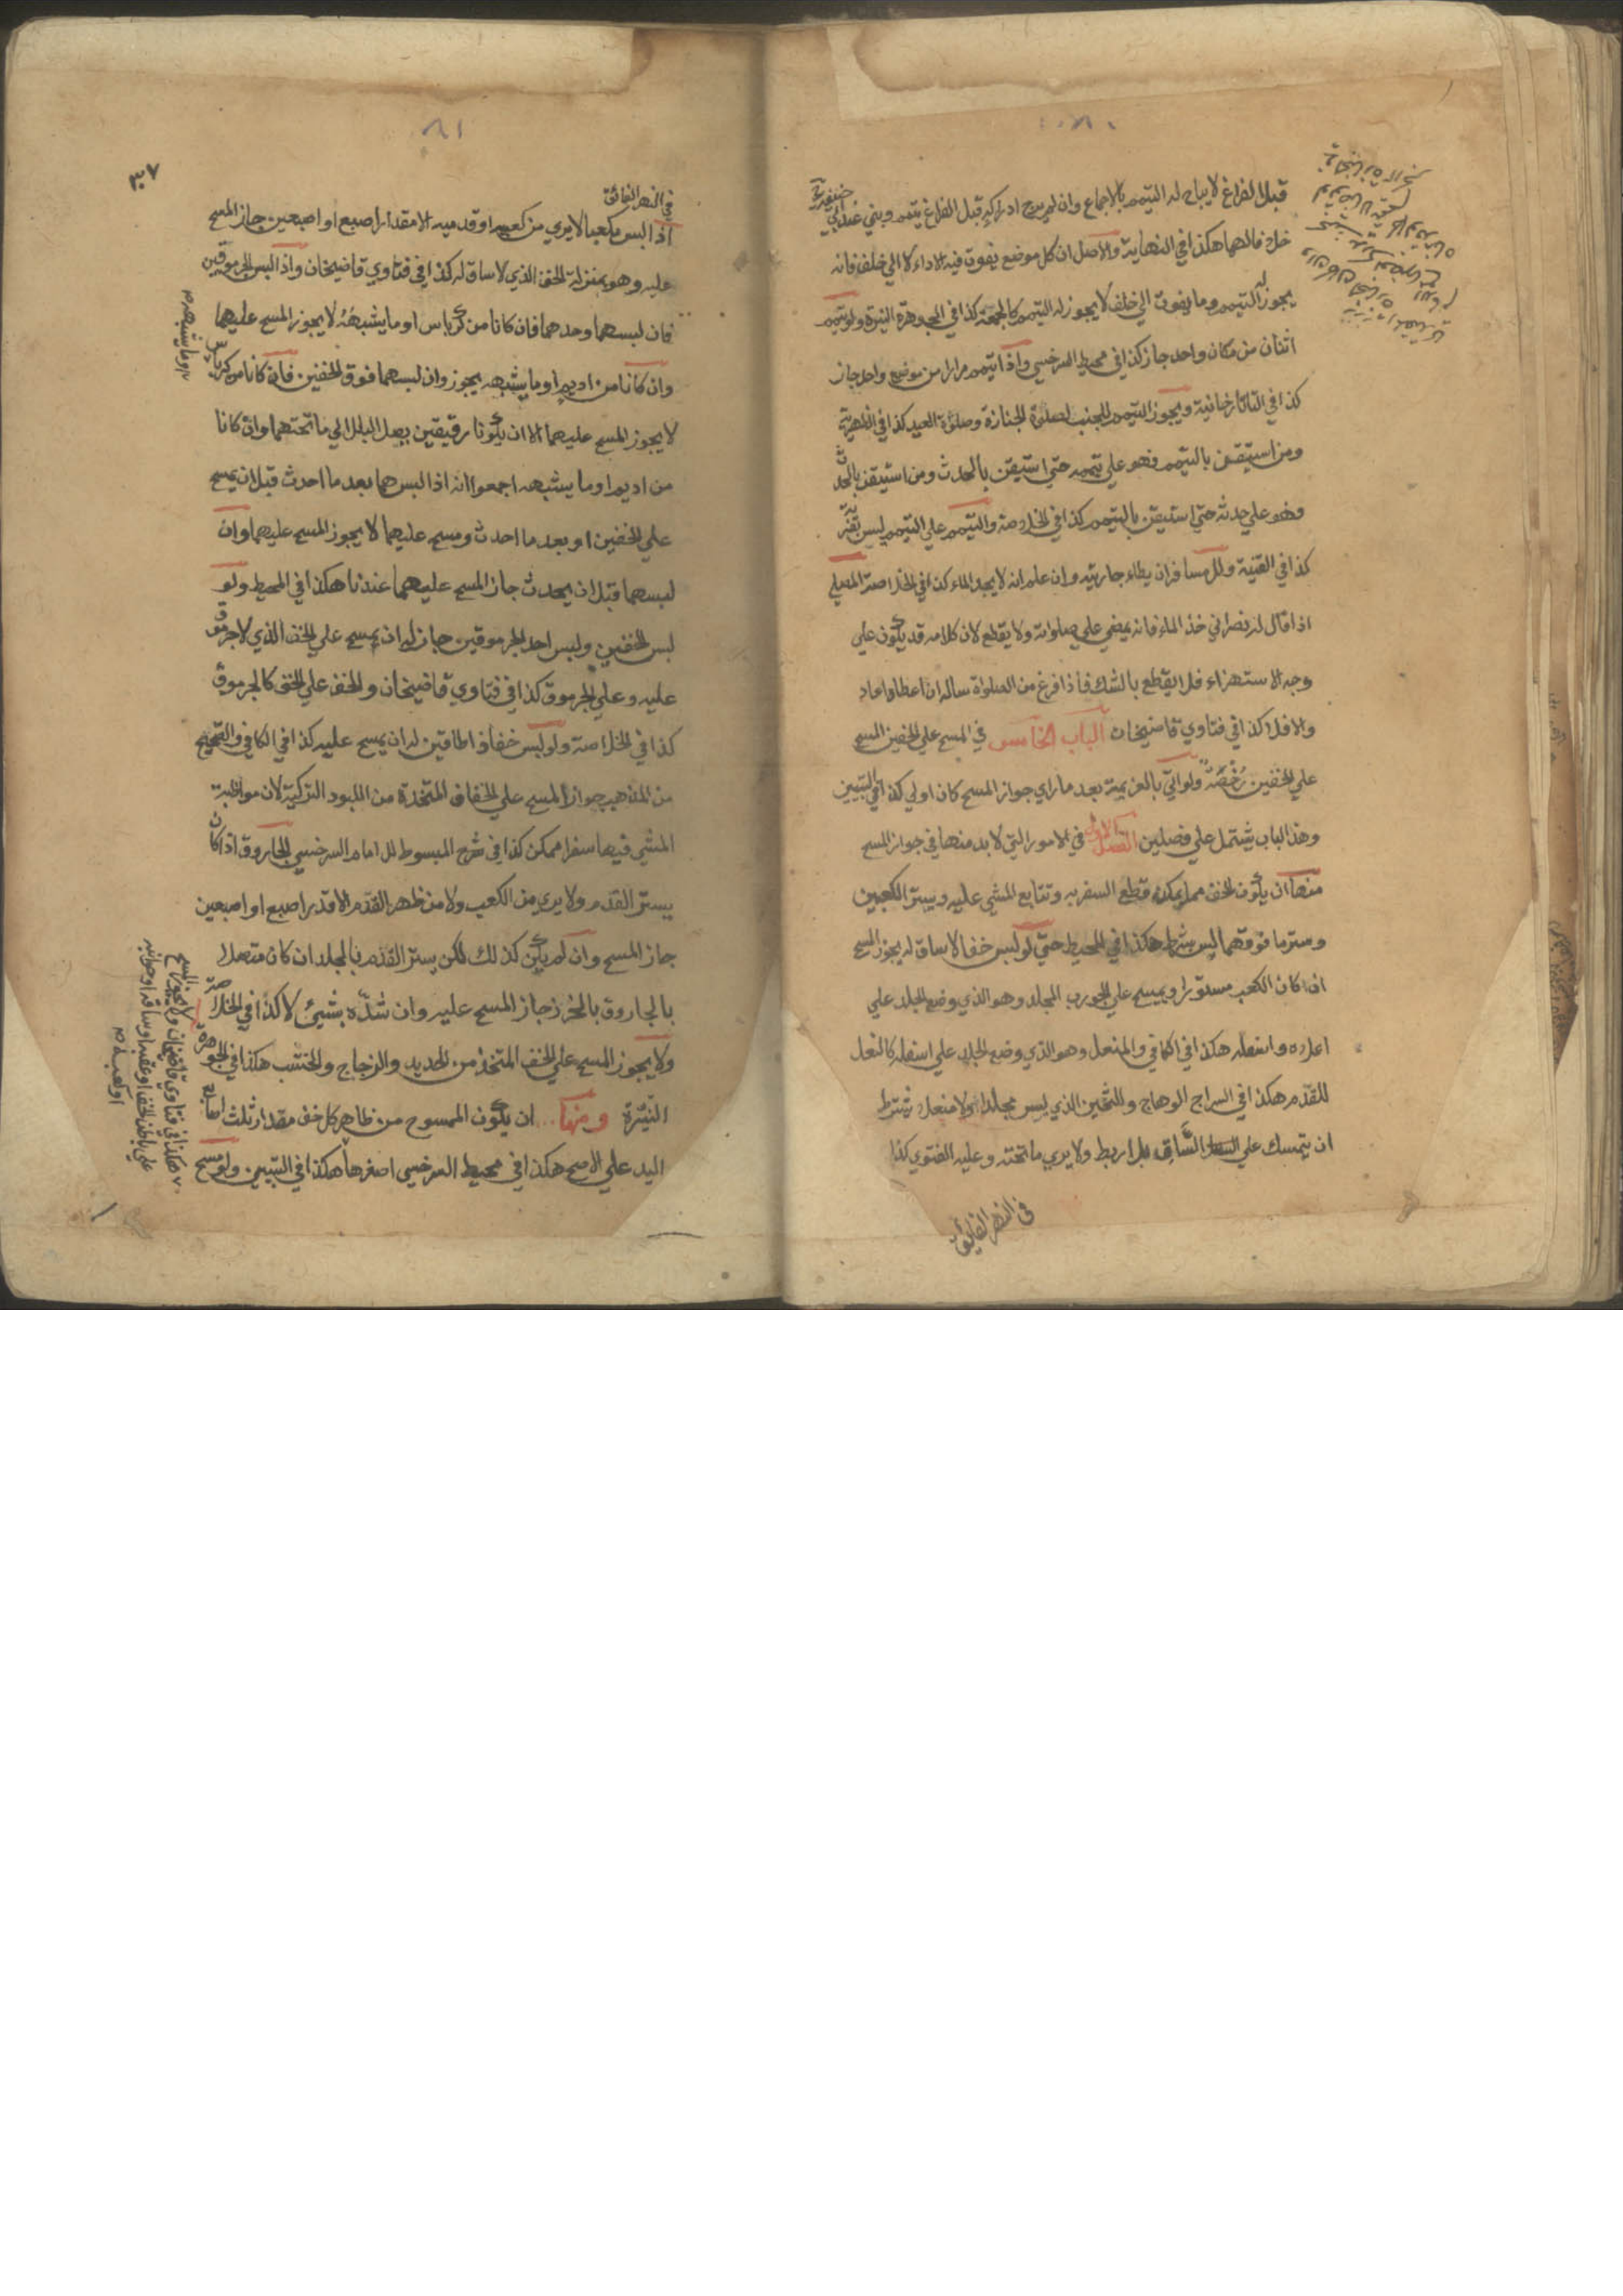 قبل الفراغ لا يباح له التيمم بالاجماع وان لم يرج ادراكه قبل الفراغ يتمم ويبني عند ابي حنيفة رح
خلافا لهما هكذا في النهاية والاصل ان كل موضع يفوت فيه الاداء لا الي خلف فانه
يجوز له التيمم وما يفوت الي خلف لا يجوز له التيمم كالجمعة كذا في الجوهرة النيرة ولو تيمم
اثنان من مكان واحد جاز كذا في محيط السرخسي واذا تيمم مرارا من موضع واحد جاز
كذا في التاتارخانية ويجوز التيمم للجنب لصلوة الجنازة وصلوة العيد كذا في الظهيرية
ومن استيقن بالتيمم فهو علي تيممه حتي استيقن بالحدث ومن استيقن بالحدث
وهو علي حدثه حتي استيقن بالتيمم كذا في الخلاصة والتيمم علي التيمم ليس بقربة
كذا في القنية وللمسافر ان يطاء جاريته وان علم انه لا يجد الماء كذا في الخلاصة المصلي
اذا قال له نصراني خذ الماء فانه يمضي علي صلواته ولا يقطع لان كلامه قد يكون علي
وجه الاستهزاء فلا يقطع بالشك فاذا فرغ من الصلواة ساله ان اعطاه اعاد
والا فلا كذا في فتاوي قاضيخان الباب الخامس في المسح علي الخفين المسح
علي الخفين رخصة ولو اتي بالعزيمة بعد ما راي جواز المسح كان اولي كذا في التبيين
وهذا الباب يشتمل علي فصلين الفصل الاول في الامور التي لا بد منها في جواز المسح
منها ان يكون الخف مما يمكن قطع السفر به وتتابع المشي عليه ويستر الكعبين
وستر ما فوقهما ليس بشرط هكذا في المحيط حتي لو لبس خفا لا ساق له يجوز المسح
ان كان الكعب مستورا ويمسح علي الجورب المجلد وهو الذي وضع الجلد علي
اعلاه واسفله هكذا في الكافي والمنعل وهو الذي وضع الجلد علي اسفله كالنعل
للقدم هكذا في السراج الوهاج والثخين الذي ليس مجلدا ولا منعلا بشرط
ان يتمسك علي الساق بلا ربط ولا يري ما تحته وعليه الفتوي كذا
في النهر الفايق
٨١
٣٧
في النهر الفائق
اذا لبس مكعبا لا يري من كعبه او قدميه الا مقدار اصبع او اصبعين جاز المسح
عليه وهو بمنزلة الخف الذي لا ساق له كذا في فتاوي قاضيخان واذا لبس الجرموقين
فان لبسهما وحدهما فان كانا من كرباس او ما يشبهه لا يجوز المسح عليهما
وان كانا من اديم او ما يشبهه يجوز وان لبسهما فوق الخفين فان كانا من كرباس
او ما يشبهه
لا يجوز المسح عليهما الا ان يكونا رقيقين يصل البلل الي ما تحتهما وان كانا
من اديم او ما يشبهه اجمعوا انه اذا لبسهما بعد ما احدث قبل ان يمسح
علي الخفين او بعد ما احدث ومسح عليهما لا يجوز المسح عليهما وان
لبسهما قبل ان يحدث جاز المسح عليهما عندنا هكذا في المحيط ولو
لبس الخفين ولبس احد الجرموقين جاز له ان يمسح علي الخف الذي لا جرموق
عليه وعلي الجرموق كذا في فتاوي قاضيخان والخف علي الخف كالجرموق
كذا في الخلاصة ولو لبس خفا ذا طاقين له ان يمسح عليه كذا في الكافي والصحيح
من المذهب جواز المسح علي الخفاف المتخذة من اللبود التركية لان مواظبة
المشي فيها سفرا ممكن كذا في شرح المبسوط للامام السرخسي الجاروق اذا كان
يستر القدم ولا يري من الكعب ولا من ظهر القدم الا قدر اصبع او اصبعين
جاز المسح وان لم يكن كذلك لكن يستر القدم بالجلد ان كان متصلا
بالجاروق بالخرز جاز المسح عليه وان شده بشيئ لا كذا في الخلاصة
ولا يجوز المسح علي الخف المتخذ من الحديد والزجاج والخشب هكذا في الجوهرة
النيرة ومنها ان يكون الممسوح من ظاهر كل خف مقدار ثلث اصابع
اليد علي الاصح هكذا في محيط السرخسي اصغرها هكذا في التبيين ولو مسح
هكذا في فتاوي قاضيخان ولا يجوز المسح
علي باطن الخف او عقبه او ساقه او جوانبه
او كعبه